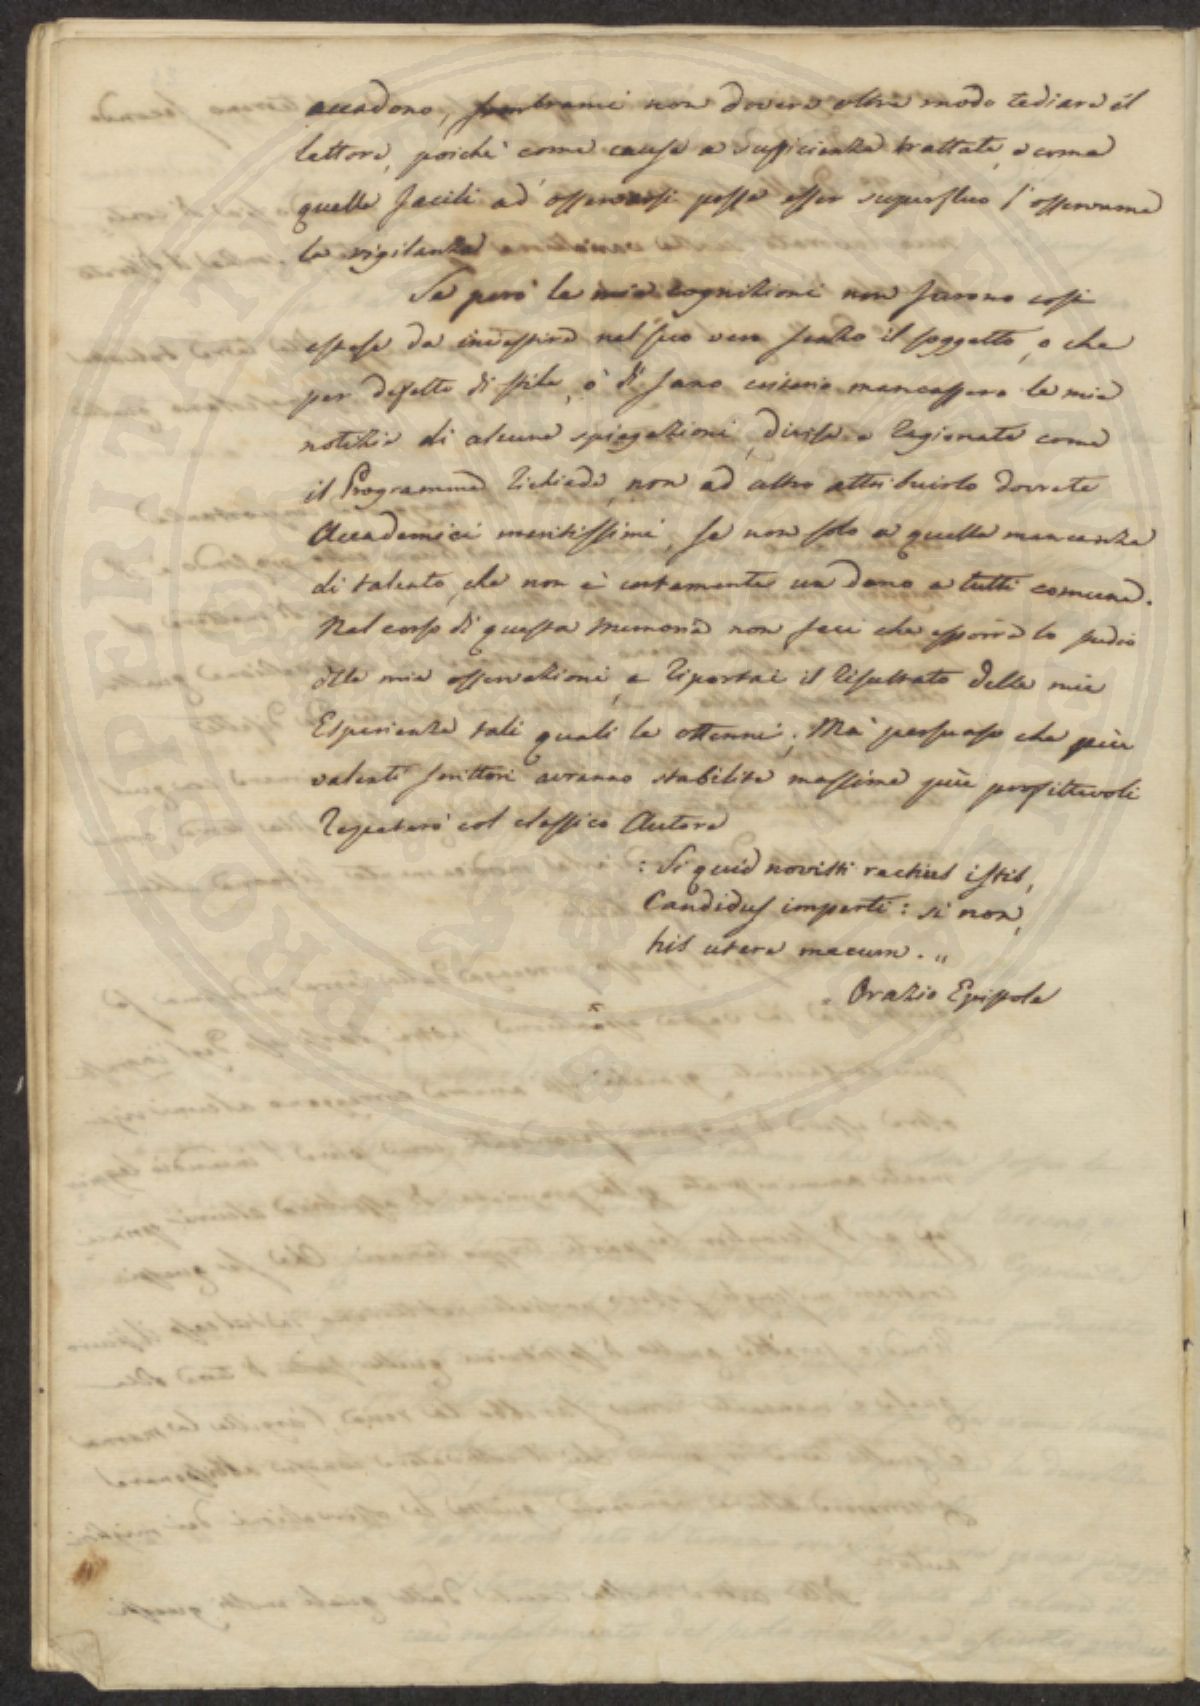 accadono, sembrami non dovere oltre modo tediare il
lettore, poichè come cause a sufficienza trattate, e come
quelle facili ad osservarsi possa esser superfluo l'osservarne
la vigilanza
Se però le mie cognizioni non furono così
estese da investire nel suo vero senso il soggetto, o che
per difetto di stile, o di sano criterio mancassero le mie
notizie di alcune spiegazioni, divise e ragionate come
il Programma richiede, non ad altro attribuirlo dovrete
Accademici meritissimi, se non solo a quella mancanza
di talento, che non è certamente un dono a tutti comune.
Nel corso di questa Memoria non feci che esporre lo
delle mie osservazioni, e riportai il risultato delle mie
Esperienze tali quali le ottenni; Ma persuaso che più
valenti scrittori avranno stabilite massime più profittevoli
repeterò col classico Autore
: Si quid novisti rectius istis,
Candidus imperti : si non,
his utere mecum . "
Orazio Epistole